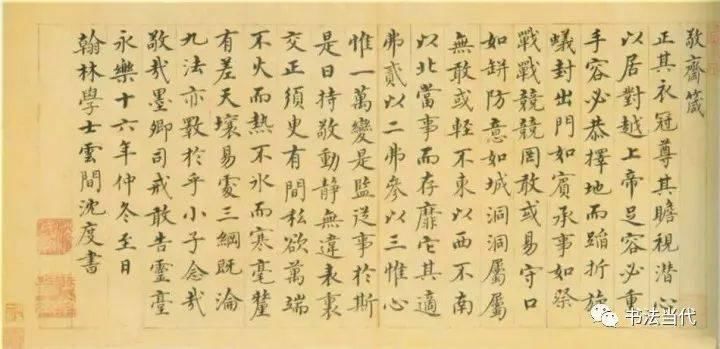 敬齋箴
正其衣冠尊其瞻視潛心
以居對越上帝足容必重
手容必恭擇地而蹈折旋
蟻封出門如賓承事如祭
戰戰兢兢罔敢或易守口
如缾防意如城洞洞屬屬
無敢或輕不東以西不南
以北當事而存靡它其適
弗貳以二弗參以三惟心
惟一萬變是監從事於斯
是曰持敬動靜無違表裏
交正須臾有間私欲萬端
不火而熱不冰而寒毫釐
有差天壤易處三綱既淪
九法亦斁於乎小子念哉
敬哉墨卿司戒敢告靈臺
永樂十六年仲冬至日
翰林學士雲間沈度書
书法当代